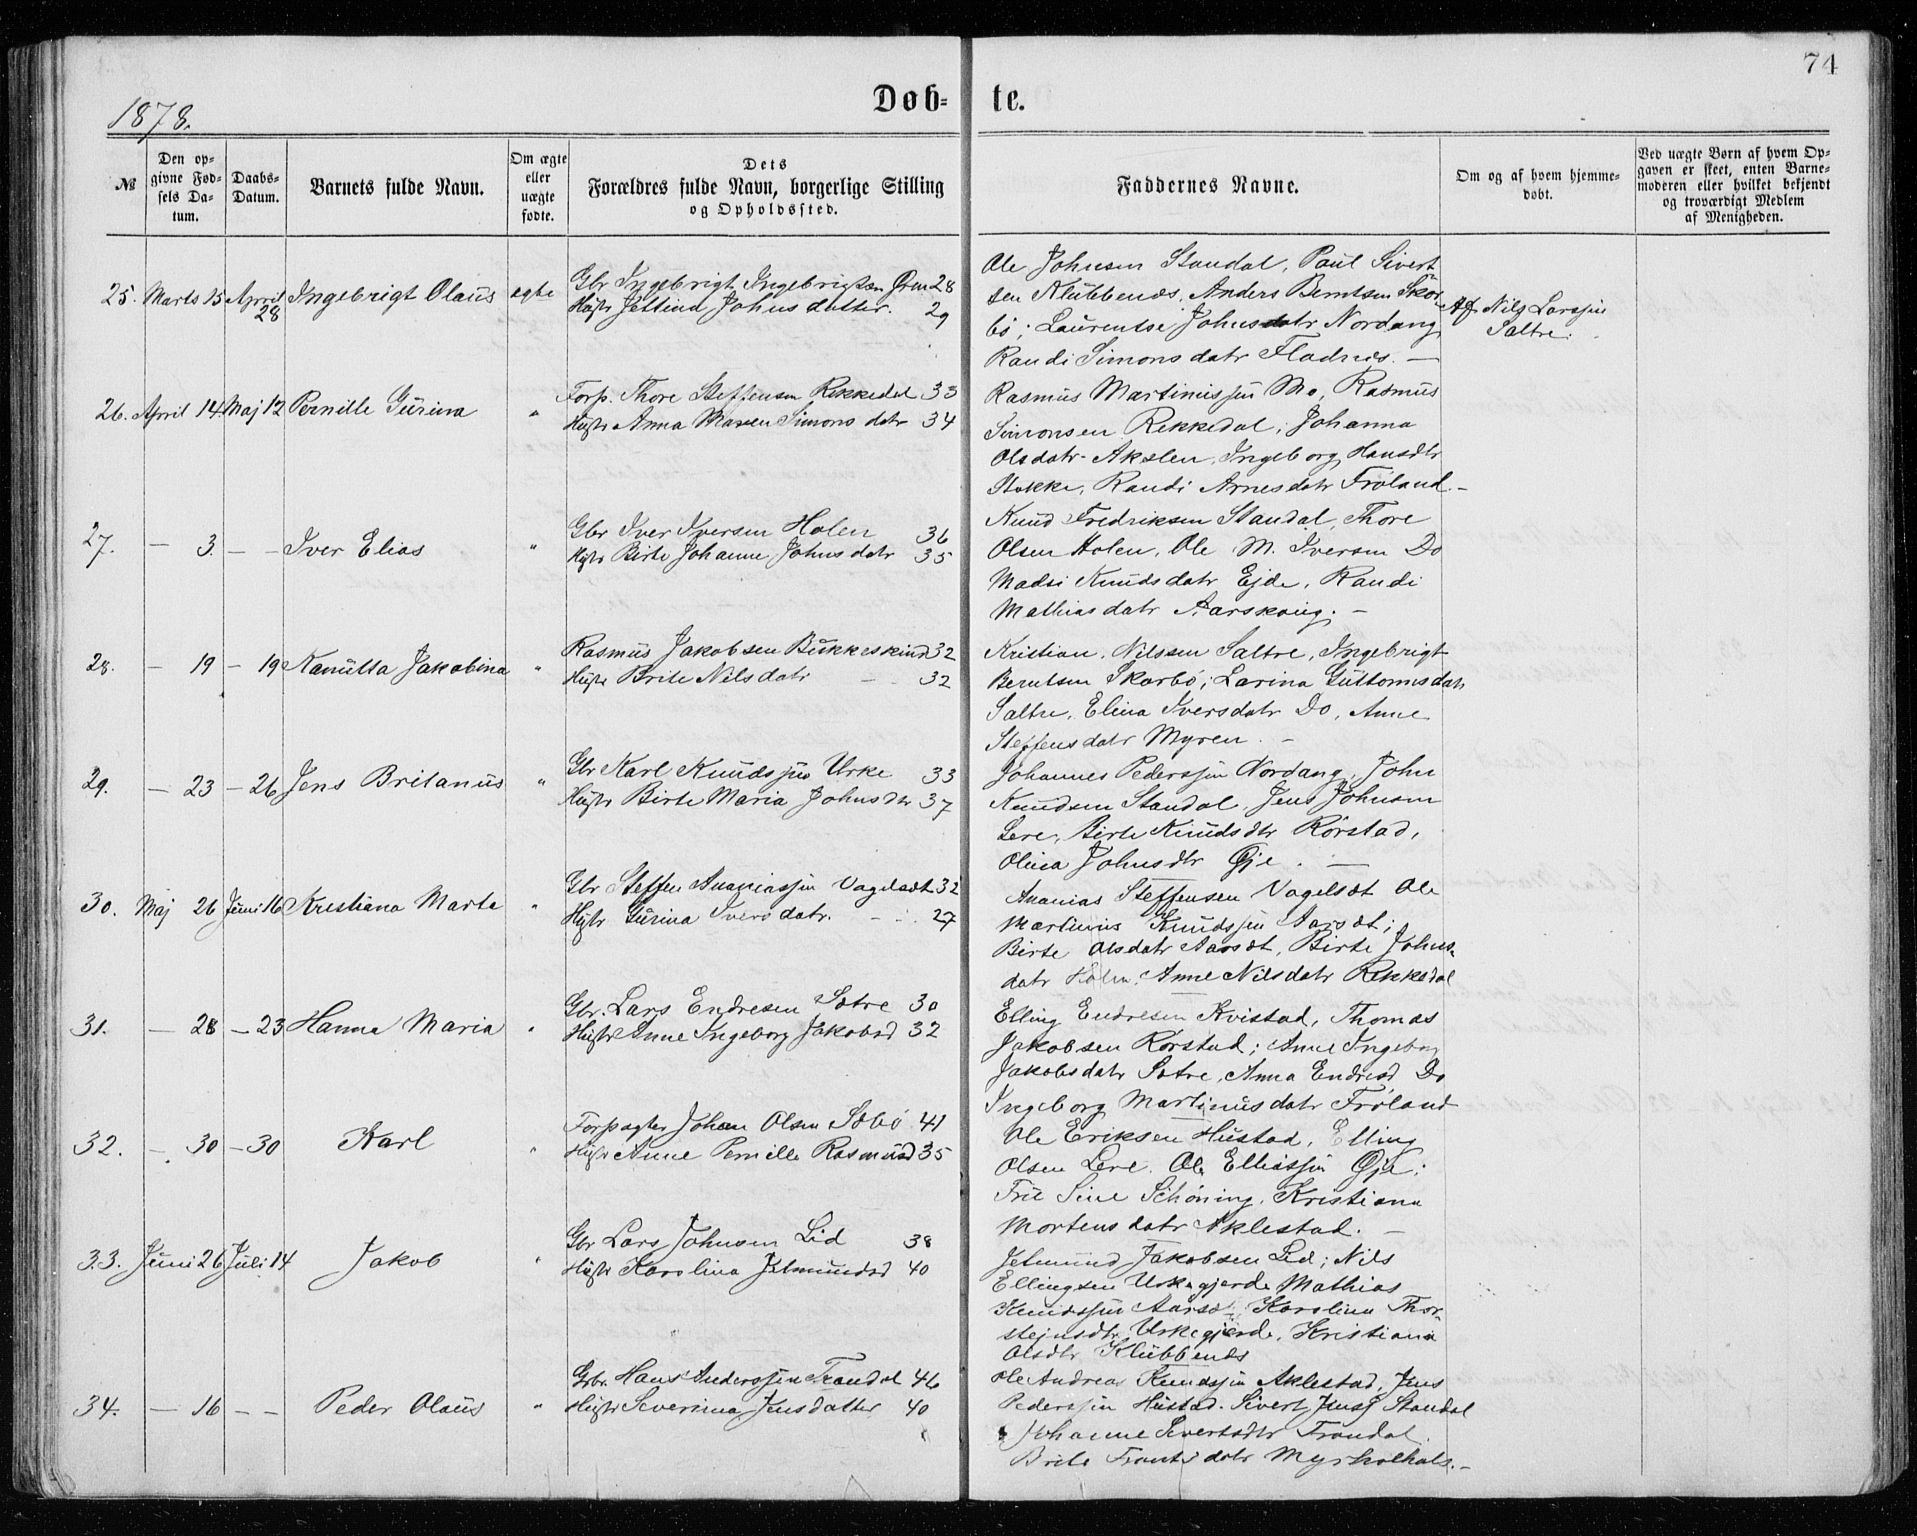 74
1878.
Døb- te.
№
Den opgivne Fødsels Datum.
Daabs-Datum.
Barnets fulde Navn.
Om ægte eller uægte fødte.
Dets Forældres fulde Navn, borgerlige Stilling og Opholdssted.
Faddernes Navne.
Om og af hvem hjemmedøbt.
Ved uægte Børn af hvem Opgaven er skeet, enten Barnemoderen eller hvilket bekjendt og troværdigt Medlem af Menigheden.
25. Marts 15 April 28 Ingebrigt Olaus egte
Gbr Ingebrigt Ingebrigtsen Øren 28
Hustr Jettine Johnsdatter. 29
Ole Johnsen Standal, Paul Sivert-
sen Klubbenes, Anders Berntsen Skor-
bø; Laurentse Johnsdatr Nordang
Randi Simonsdatr Fladnes. —
Af Nils Larssen
Sætre.
26. April 14 Maj 12 Pernille Gurina "
Forp. Thore Steffensen Rekkedal 33
Hustr Anna Maren Simonsdatr 34
Rasmus Martinussen Mo, Rasmus
Simonsen Rekkedal; Johanna
Olsdatr Akslen, Ingeborg Hansdtr
Stokke, Randi Arnesdatr Frøland. —
27. — 3 — — Iver Elias "
Gbr Iver Iversen Holen 36
Hustr Birte Johanne Johnsdatr 35
Knud Fredriksen Standal, Thore
Olsen Holen, Ole M. Iversen Do
Madsi Knudsdatr Ejde, Randi
Mathiasdatr Aarskoug. —
28. — 19 — 19 Kanutta Jakobina "
Rasmus Jakobsen Bukkeskind 32
Hustr Brite Nilsdatr — 32
Kristian Nilssen Sætre, Ingebrigt
Berntsen Skorbø; Larina Guttormsdatr
Sætre, Elina Iversdatr Do, Anne
Steffensdatr Myren. —
29. — 23 — 26 Jens Britanus "
Gbr Karl Knudssen Urke 33
Hustr Birte Maria Johnsdtr 37
Johannes Pederssen Nordang, John
Knudsen Standal, Jens Johnsen
Lere, Birte Knudsdtr Rørstad,
Olina Johnsdtr Øje. —
30. Maj 26 Juni 16 Kristiana Marte "
Gbr Steffen Ananiassen Vagelsæt 32
Hustr Gurina Iversdatr. — 27
Ananias Steffensen Vagelsæt Ole
Martinus Knudssen Aarsæt;
Birte Olsdatr Aarsæt, Birte Johns-
datr Holen, Anne Nilsdatr Rekkedal
31. — 28 — 23 Hanna Maria "
Gbr. Lars Endresen Sætre 30
Hustr Anne Ingeborg Jakobsd 32
Elling Endresen Kvistad, Thomas
Jakobsen Rørstad; Anne Ingeborg
Jakobsdatr Sætre, Anna Endresd Do
Ingeborg Martinusdatr Frøland
32. — 30 — 30 Karl "
Forpagter Johan Olsen Sæbø 41
Hustr Anne Pernille Rasmusd 35
Ole Eriksen Hustad, Elling
Olsen Lere, Ole Elliassen Øje;
Fru Sine Schöning, Kristiana
Mortensdatr Aklestad. —
33. Juni 26 Juli 14 Jakob "
Gbr Lars Johnsen Lid 38
Hustr Karolina Jetmundsd 40
Jetmund Jakobsen Lid; Nils
Ellingsen Urkegjerde Mathias
Knudssen Aarsæt Karolina Thor-
stejnsdtr Urkegjerde, Kristiana
Olsdtr Klubbenes
34. — 16 — — Peder Olaus "
Gbr. Hans Anderssen Trandal 46
Hustr Severina Jensdatter 40
Ole Andreas Knudssen Aklestad, Jens
Pederssen Hustad. Sivert Jenss Standal
Johanne Sivertsdtr Trandal.
Brite Frantsdatr Myrholhals. —